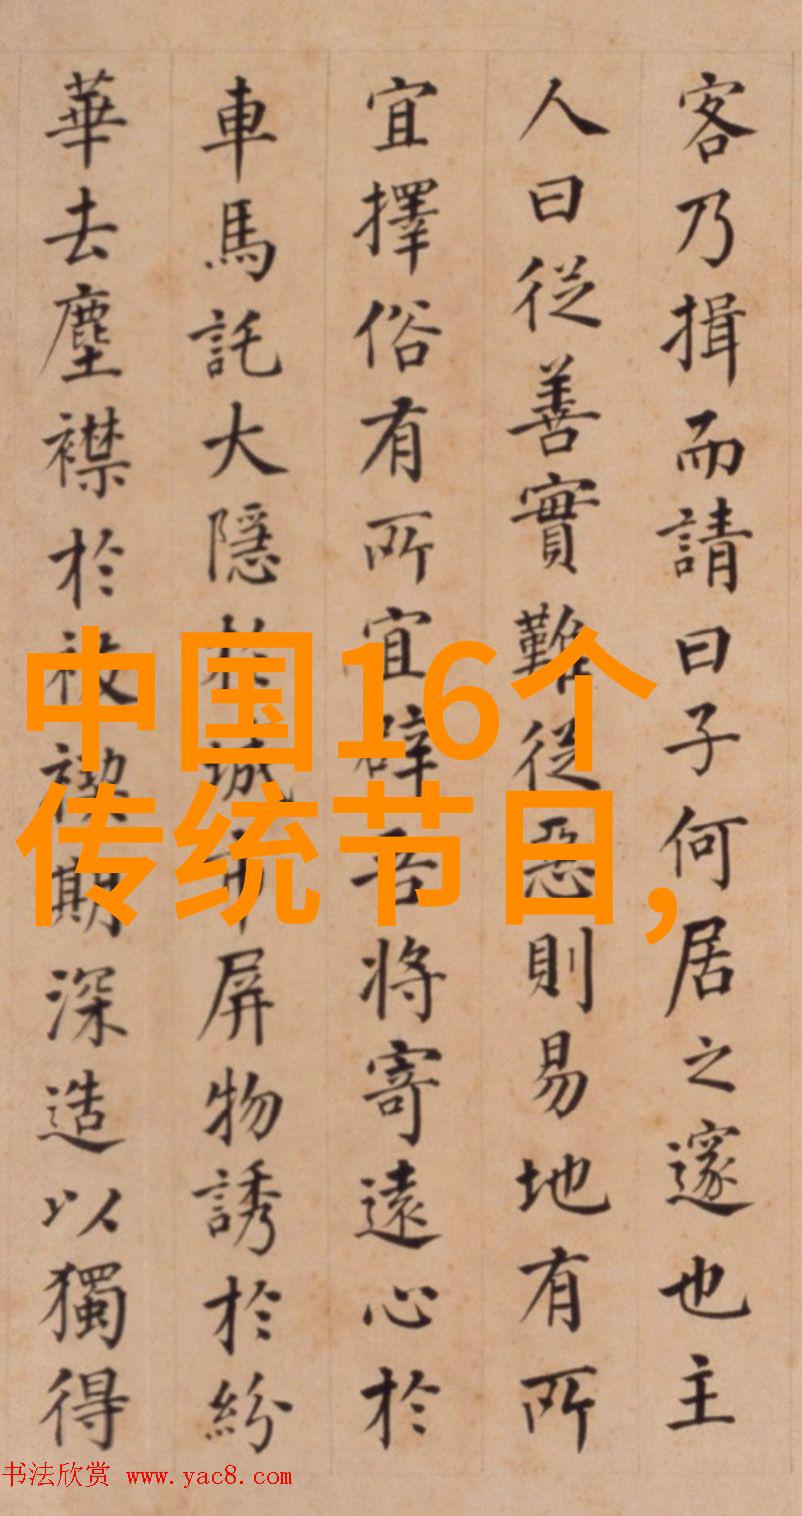 客乃揖而請曰子何居之邃也主
人曰從善實難從惡則易地有所
宜擇俗有所宜辟吾將寄遠心於
車馬託大隱於城市屏物誘於紛
華去塵襟於祓禊期深造以獨得
中国16个
传统节目,
书法欣赏 www.yac8.com